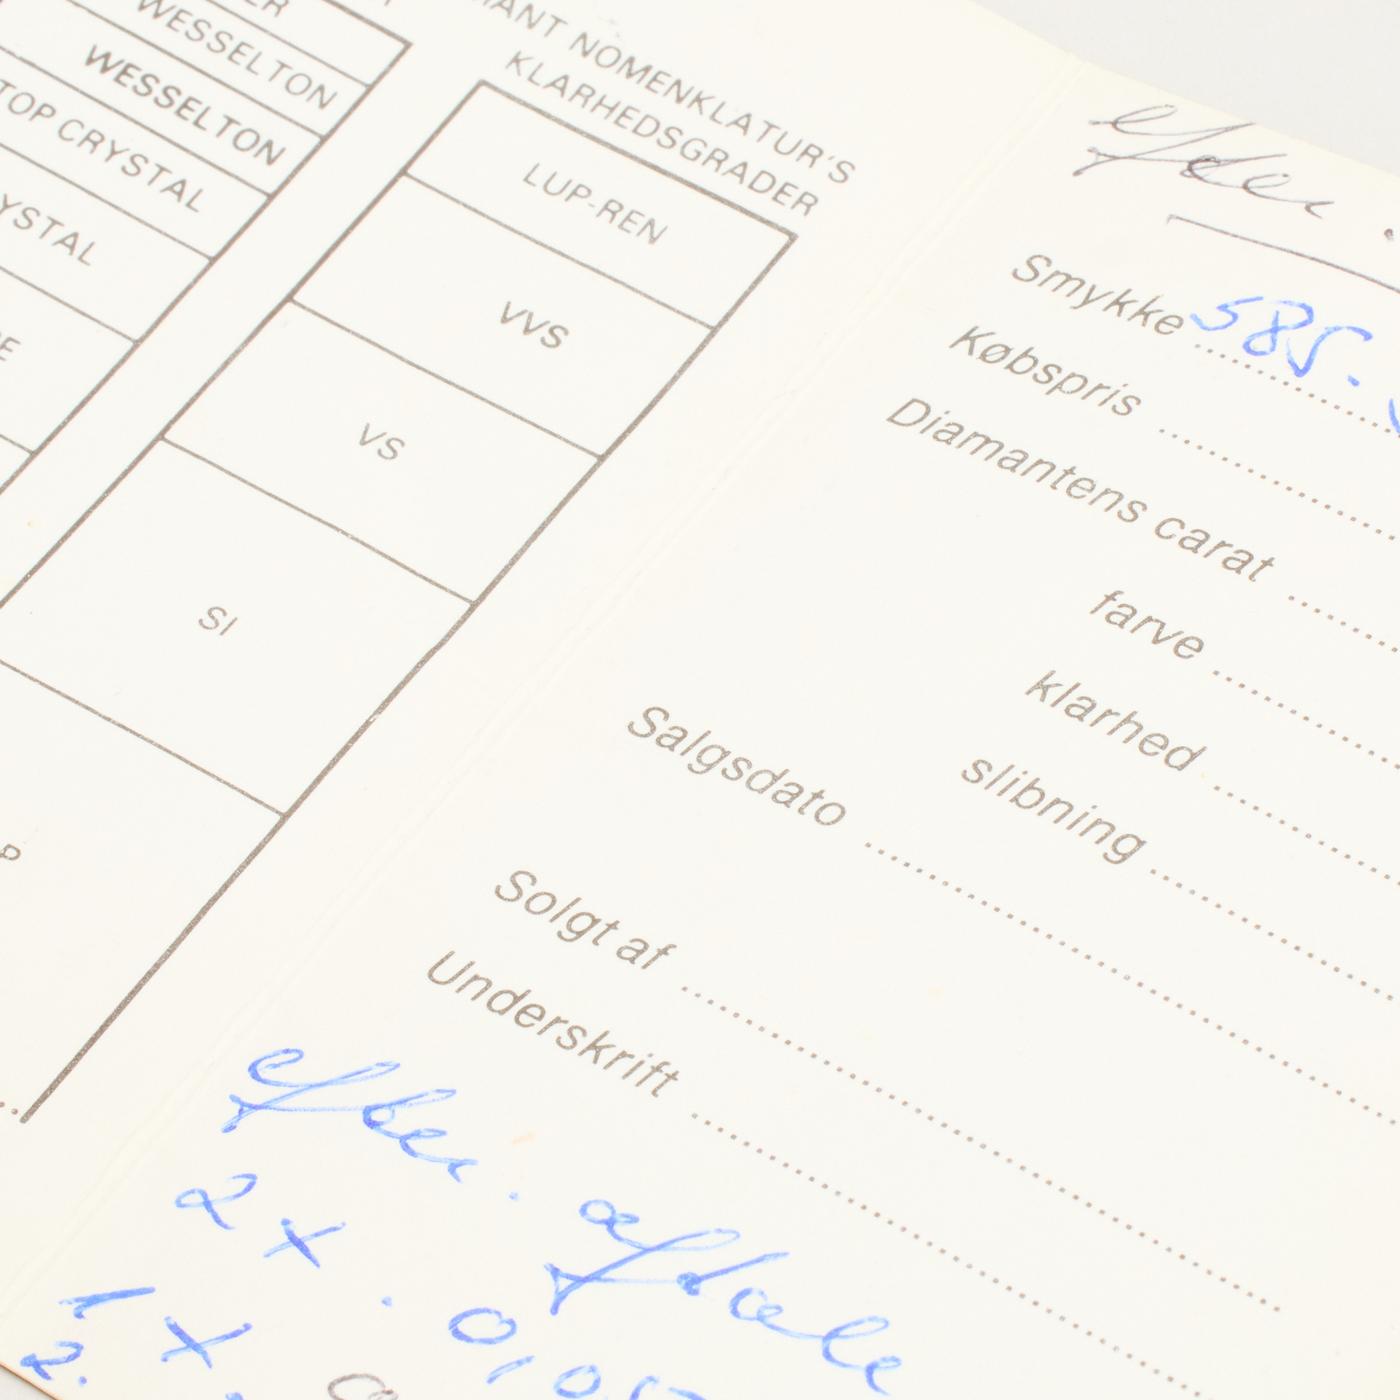 WESSELTON
WESSELTON
TOP CRYSTAL
YSTAL
E
ANT NOMENKLATUR'S
KLARHEDSGRADER
LUP-REN
VVS
VS
SI
P
Smykke 585.
Købspris
Diamantens carat
farve
klarhed
slibning
Salgsdato
Solgt af
Underskrift
2 x
1 x 0,05
2.